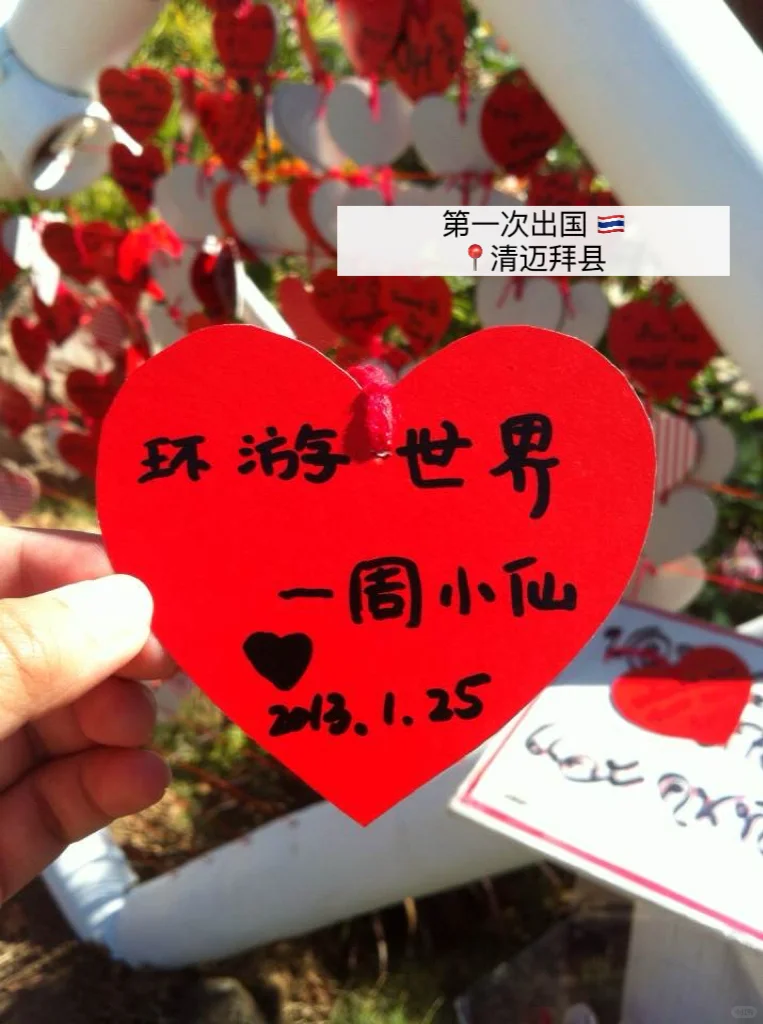 第一次出国 🇹🇭
📍清迈拜县
环游世界
一周小仙
♥
2013.1.25